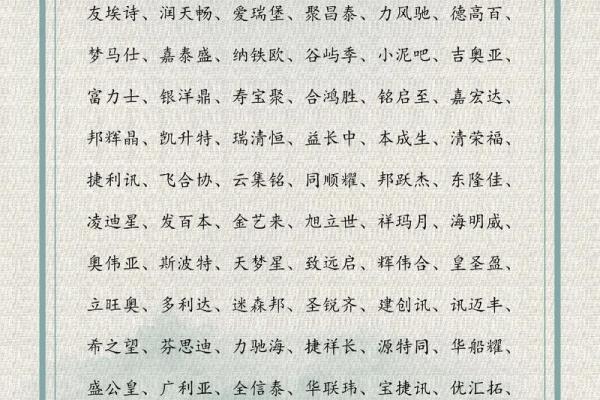 友埃诗、润天畅、爱瑞堡、聚昌泰、力风驰、德高百、
梦马仕、嘉泰盛、纳铁欧、谷屿季、小泥吧、吉奥亚、
富力士、银洋鼎、寿宝聚、合鸿胜、铭启至、嘉宏达、
邦辉晶、凯升特、瑞清恒、益长中、本成生、清荣福、
捷利讯、飞合协、云集铭、同顺耀、邦跃杰、东隆佳、
凌迪星、发百本、金艺来、旭立世、祥玛月、海明威、
奥伟亚、斯波特、天梦星、致远启、辉伟合、皇圣盈、
立旺奥、多利达、迷森邦、圣锐齐、建创讯、讯迈丰、
希之望、芬思迪、力驰海、捷祥长、源特同、华船耀、
盛公皇、广利亚、全信泰、华联玮、宝捷讯、优汇拓、